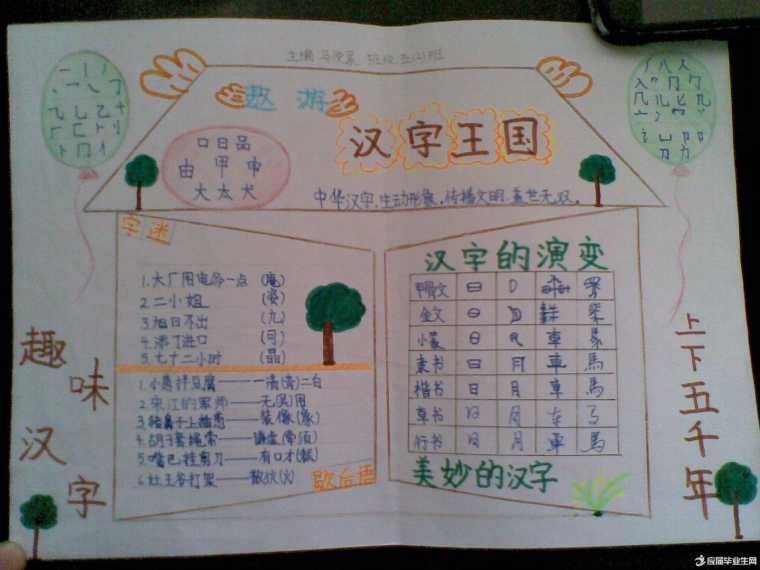 班级五(2)班
遨游
汉字王国
口日品
由甲申
大太犬
中华汉字,生动形象,传播文明,盖世无双。
字迷
1.大厂用电布一点 (庵)
2.二小姐 (姿)
3.旭日不出 (九)
4.添丁进口 (可)
5.七十二小时 (晶)
1.小葱拌豆腐——一清(青)二白
2.宋江的军师——无(吴)用
3.猪鼻子上插葱——装像(象)
4.胡子套绳索——谦虚(牵须)
5.嘴巴挂剪刀——有口才(裁)
6.灶王爷打架——散伙(火)
歇后语
汉字的演变
甲骨文
金文
小篆
隶书 日 月 車 馬
楷书 日 月 車 馬
草书
行书 日 月 車 馬
美妙的汉字
趣味汉字
上下五千年
应届毕业生网